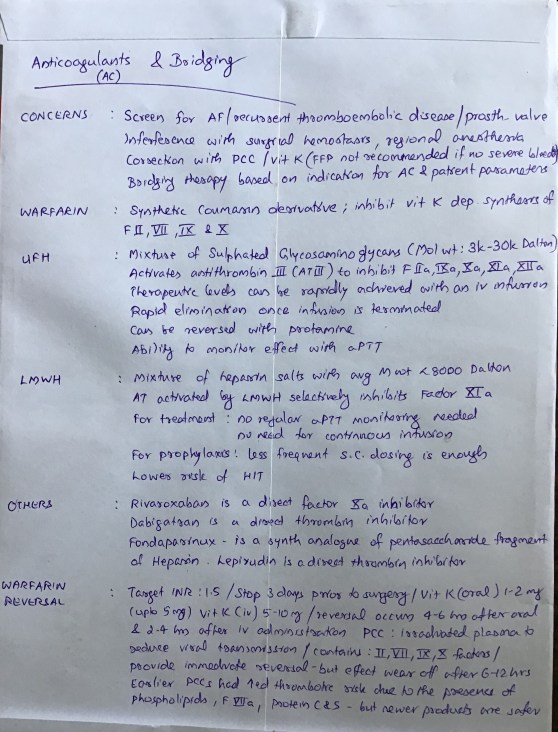 Anticoagulants & Bridging
(AC)
CONCERNS : Screen for AF/recurrent thromboembolic disease/prosth. valve
Interference with surgical hemostasis, regional anesthesia
Correction with PCC/vit K (FFP not recommended if no severe bleed)
Bridging therapy based on indication for AC & patient parameters
WARFARIN : Synthetic Coumarin derivative; inhibit vit K dep. syntheses of
F II, VII, IX & X
UFH : Mixture of Sulphated Glycosaminoglycans (Mol wt: 3k-30k Dalton)
Activates antithrombin III (AT III) to inhibit F IIa, IXa, Xa, XIa, XIIa
Therapeutic levels can be rapidly achieved with an iv infusion
Rapid elimination once infusion is terminated
Can be reversed with protamine
Ability to monitor effect with aPTT
LMWH : Mixture of heparin salts with avg M wt <8000 Dalton
AT activated by LMWH selectively inhibits Factor XIa
For treatment : no regular aPTT monitoring needed
no need for continuous infusion
For prophylaxis : less frequent s.c. dosing is enough
Lower risk of HIT
OTHERS : Rivaroxaban is a direct factor Xa inhibitor
Dabigatran is a direct thrombin inhibitor
Fondaparinux - is a synth analogue of pentasaccharide fragment
of Heparin. Lepirudin is a direct thrombin inhibitor
WARFARIN
REVERSAL : Target INR : 1.5 / Stop 3 days prior to surgery / Vit K (oral) 1-2 mg
(upto 5mg) Vit K (iv) 5-10 mg / reversal occurs 4-6 hrs after oral
& 2-4 hrs after iv administration PCC : irradiated plasma to
reduce viral transmission / contains : II, VII, IX, X factors /
provide immediate reversal - but effect wear off after 6-12 hrs
Earlier PCCs had ↑ed thrombotic risk due to the presence of
phospholipids, F VIIa, protein C & S - but newer products are safer